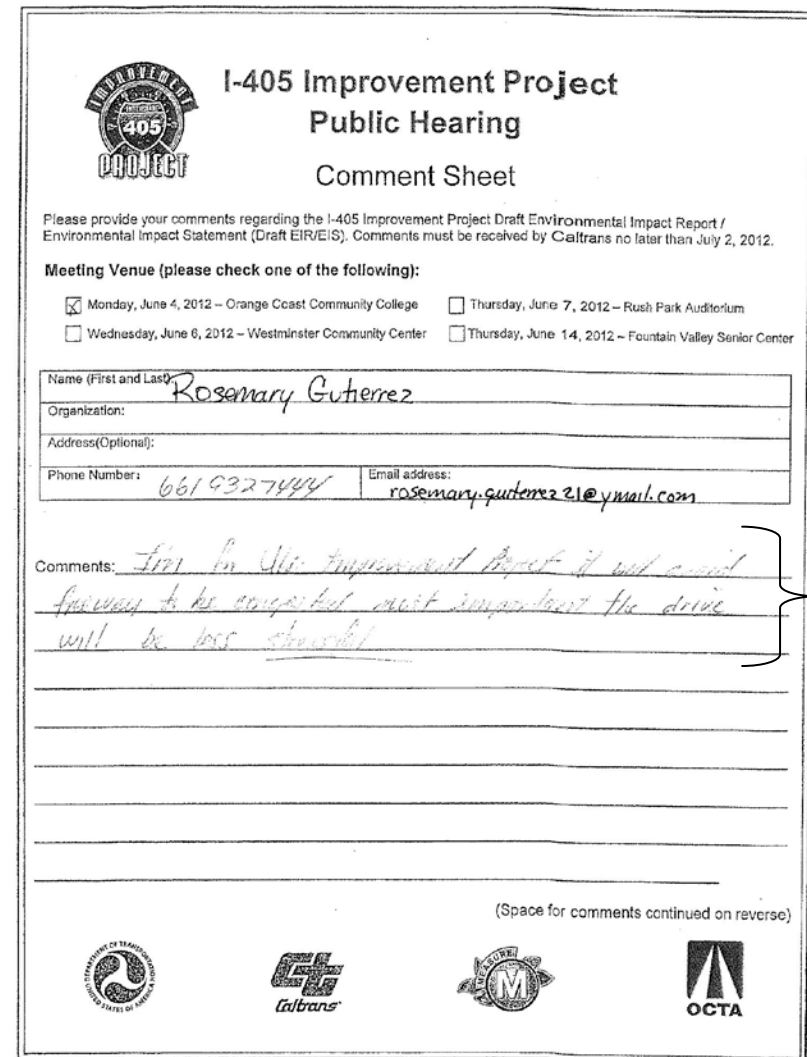 IMPROVEMENT
405
PROJECT
I-405 Improvement Project
Public Hearing
Comment Sheet
Please provide your comments regarding the I-405 Improvement Project Draft Environmental Impact Report /
Environmental Impact Statement (Draft EIR/EIS). Comments must be received by Caltrans no later than July 2, 2012.
Meeting Venue (please check one of the following):
Monday, June 4, 2012 – Orange Coast Community College
Thursday, June 7, 2012 – Rush Park Auditorium
Wednesday, June 6, 2012 – Westminster Community Center
Thursday, June 14, 2012 – Fountain Valley Senior Center
Name (First and Last): Rosemary Gutierrez
Organization:
Address(Optional):
Phone Number: 661 9327444
Email address:
Comments: I'm for the Improvement Project it will avoid
freeway to be congested most important the drive
will be less stressful
(Space for comments continued on reverse)
DEPARTMENT OF TRANSPORTATION
UNITED STATES OF AMERICA
Caltrans
MEASURE
M
OCTA